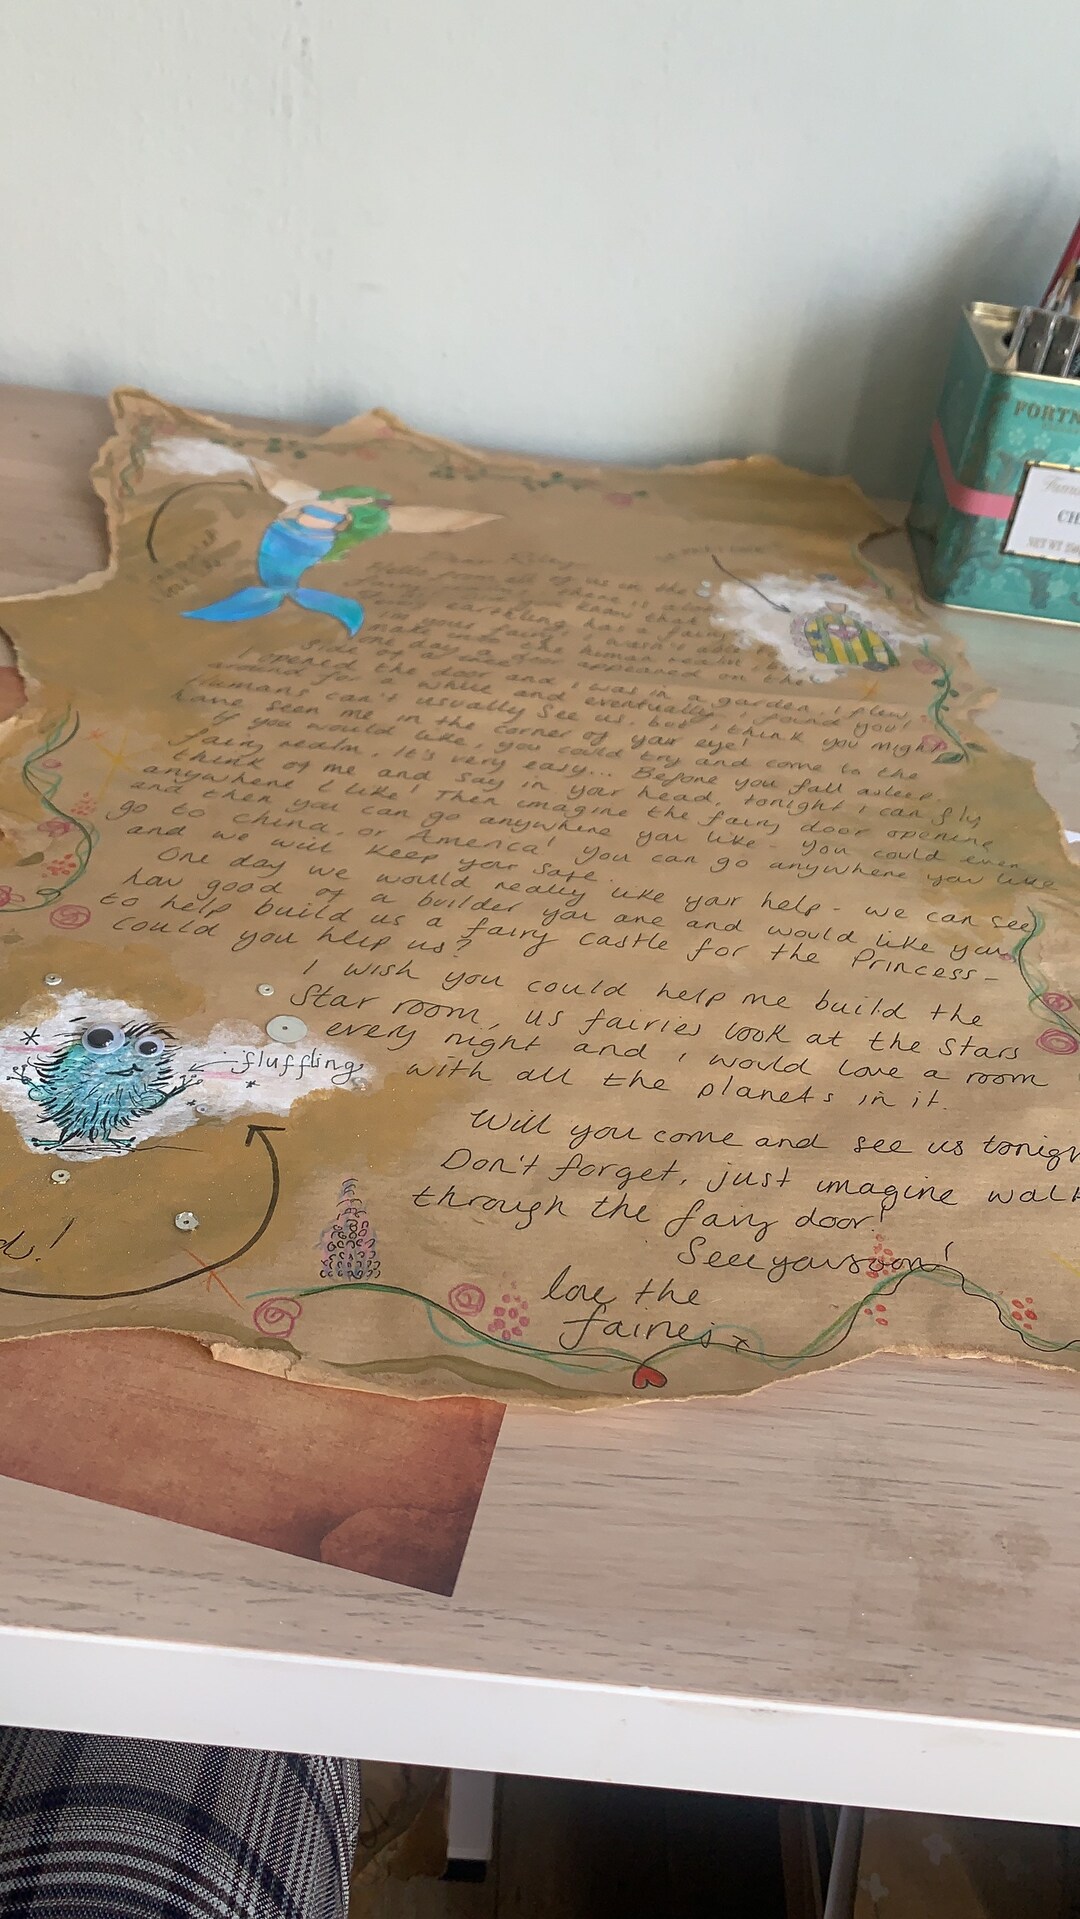 Dear Riley
Hello from all of us in the
fairy
know that
earthling has a fairy
I'm your fairy, I wasn't able
make into the human realm, but
one day a door appeared on the
side of a tree
I opened the door and I was in a garden. I flew
around for a while and eventually, I found you!
Humans can't usually see us, but I think you might
have seen me in the corner of your eye!
If you would like, you could try and come to the
fairy realm. It's very easy... Before you fall asleep,
think of me and say in your head, tonight I can fly
anywhere I like! Then imagine the fairy door opening
and then you can go anywhere you like - you could even
go to China, or America! You can go anywhere you like
and we will keep your safe.
One day we would really like your help - we can see
how good of a builder you are and would like you
to help build us a fairy castle for the Princess -
could you help us?
I wish you could help me build the
Star room, us fairies look at the stars
every night and I would love a room
with all the planets in it.
Will you come and see us
Don't forget, just imagine
through the fairy door!
See you soon!
love the
fairies x
fluffling
FORTN
CH